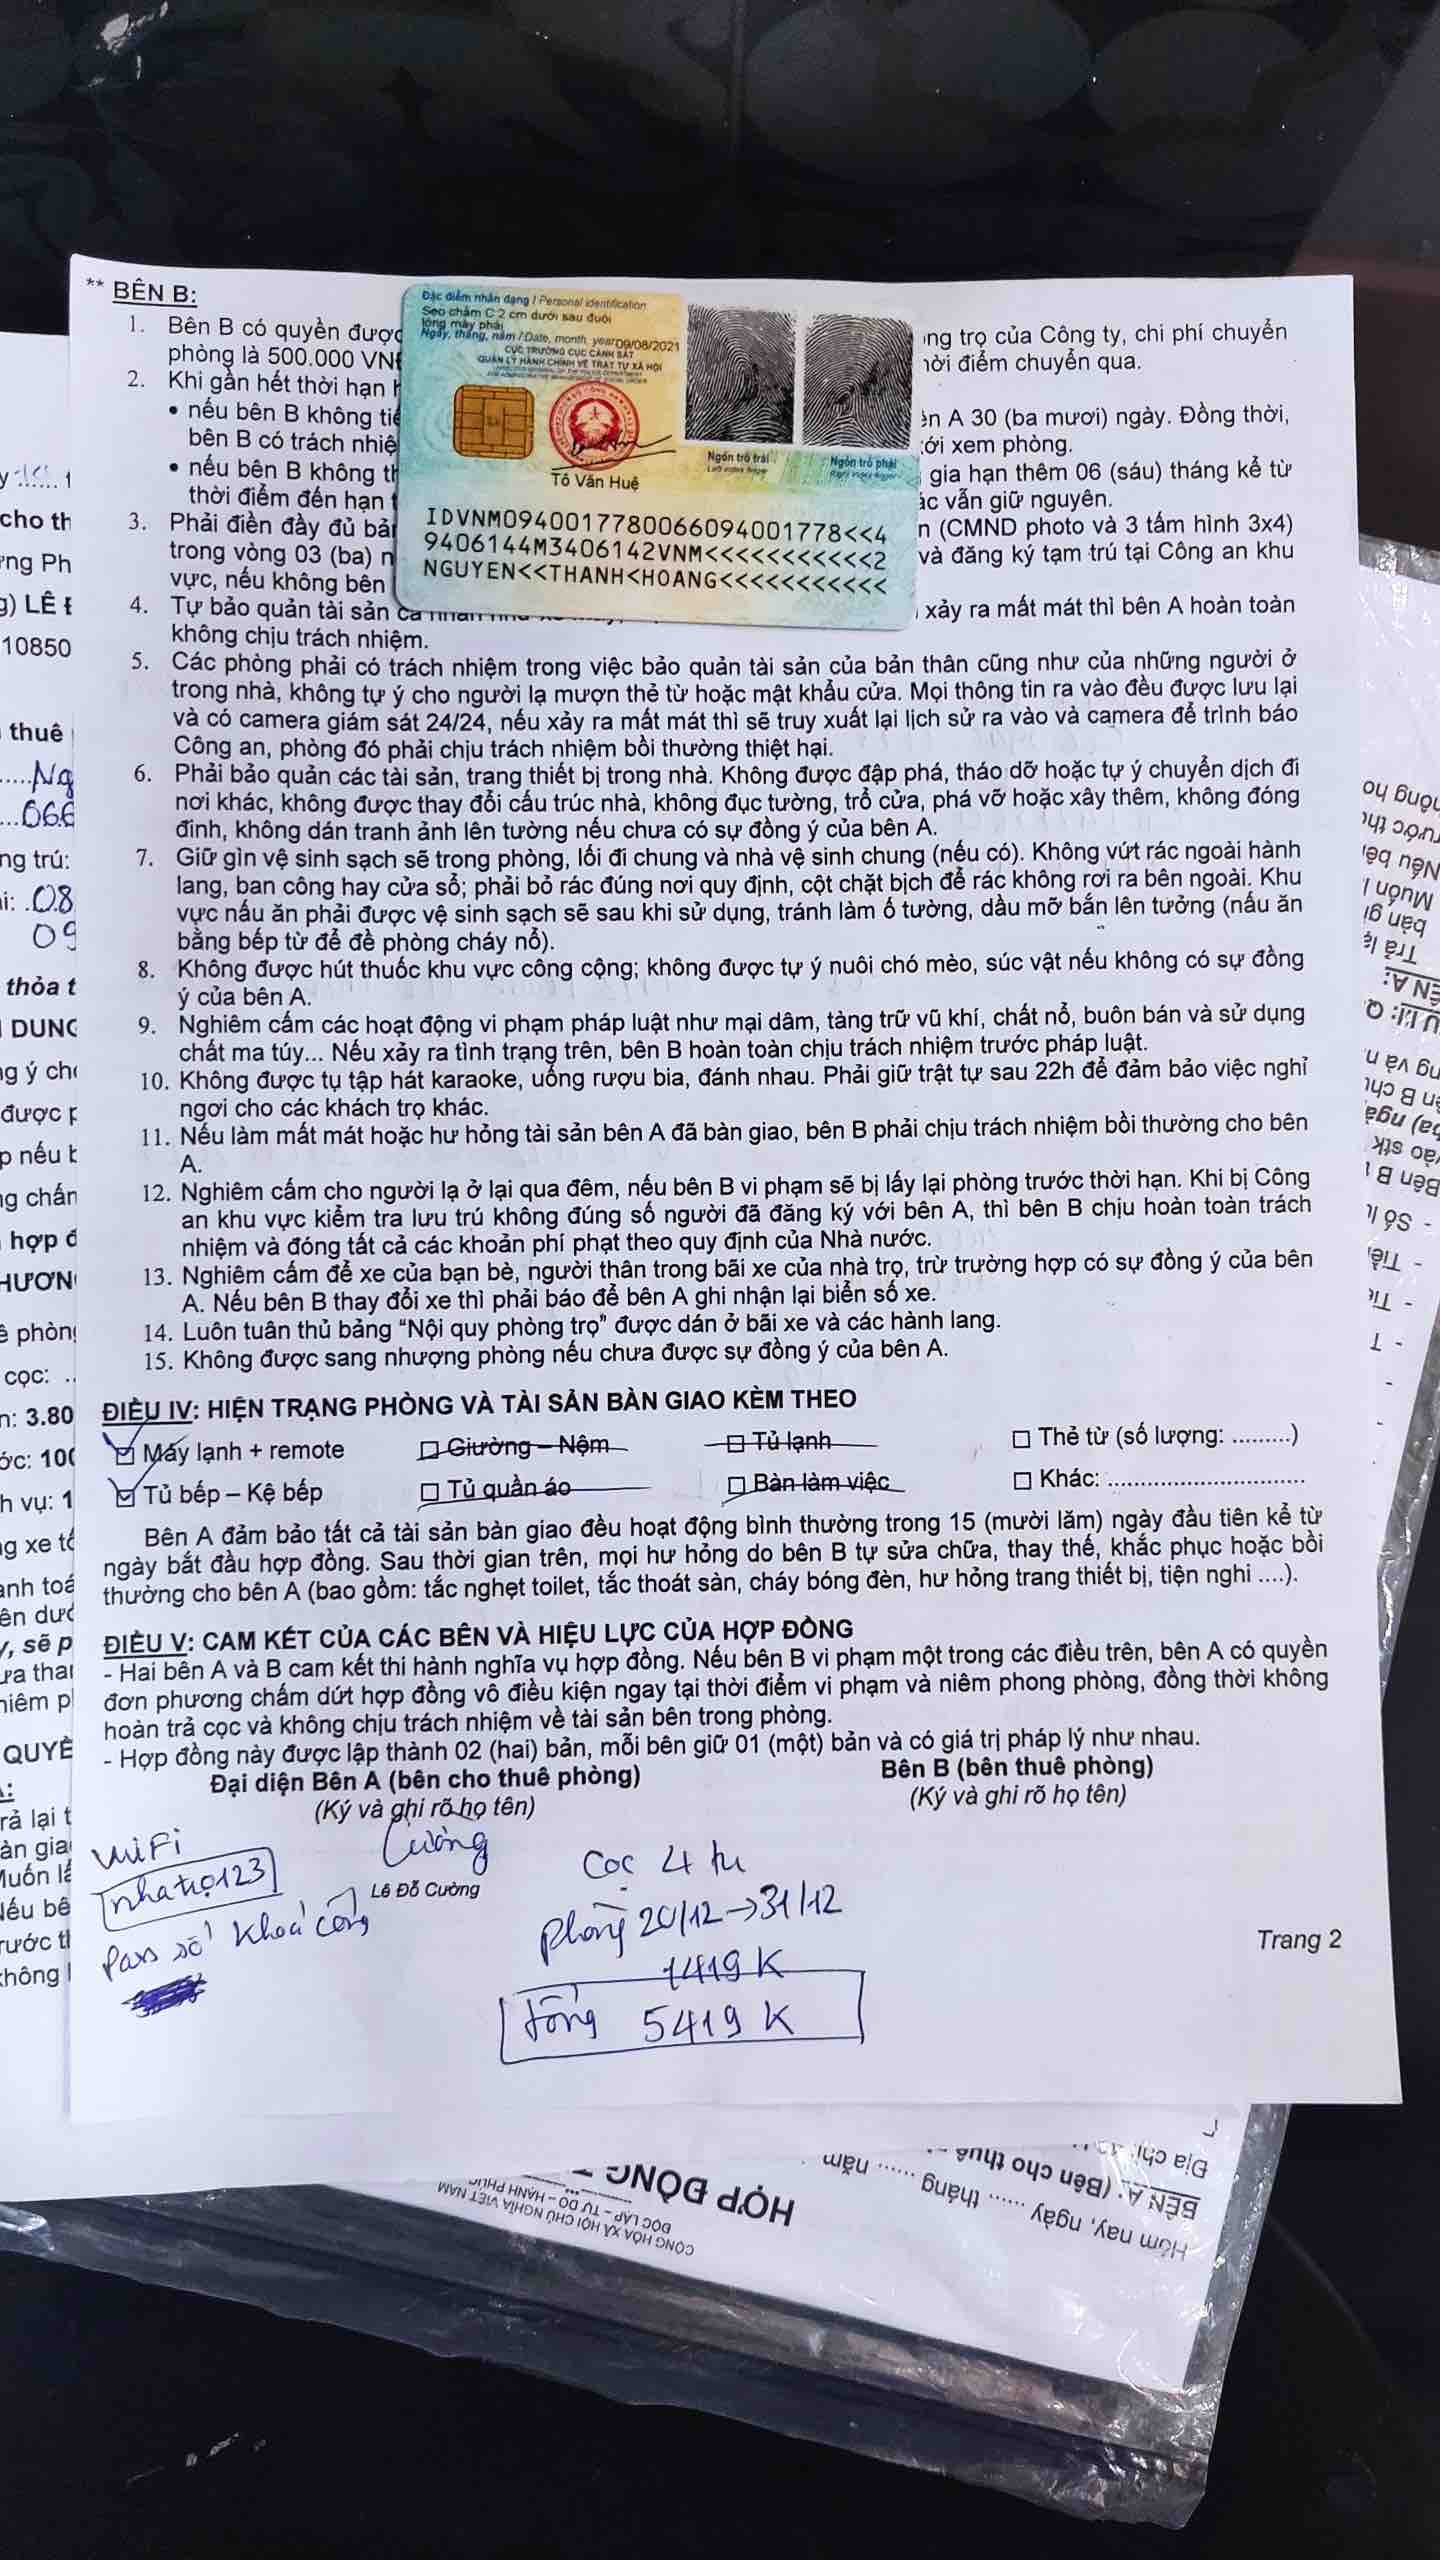 ** BÊN B:
1. Bên B có quyền được
ng trọ của Công ty, chi phí chuyển
phòng là 500.000 VNĐ
hời điểm chuyển qua.
2. Khi gần hết thời hạn
• nếu bên B không
ên A 30 (ba mươi) ngày. Đồng thời,
bên B có trách
ới xem phòng.
• nếu bên B không
gia hạn thêm 06 (sáu) tháng kể từ
thời điểm đến hạn
ác vẫn giữ nguyên.
3. Phải điền đầy đủ
(CMND photo và 3 tấm hình 3x4)
trong vòng 03 (ba)
và đăng ký tạm trú tại Công an khu
vực, nếu không bên
4. Tự bảo quản tài sản
xảy ra mất mát thì bên A hoàn toàn
không chịu trách nhiệm.
5. Các phòng phải có trách nhiệm trong việc bảo quản tài sản của bản thân cũng như của những người ở
trong nhà, không tự ý cho người lạ mượn thẻ từ hoặc mật khẩu cửa. Mọi thông tin ra vào đều được lưu lại
và có camera giám sát 24/24, nếu xảy ra mất mát thì sẽ truy xuất lại lịch sử ra vào và camera để trình báo
Công an, phòng đó phải chịu trách nhiệm bồi thường thiệt hại.
6. Phải bảo quản các tài sản, trang thiết bị trong nhà. Không được đập phá, tháo dỡ hoặc tự ý chuyển dịch đi
nơi khác, không được thay đổi cấu trúc nhà, không đục tường, trổ cửa, phá vỡ hoặc xây thêm, không đóng
đinh, không dán tranh ảnh lên tường nếu chưa có sự đồng ý của bên A.
7. Giữ gìn vệ sinh sạch sẽ trong phòng, lối đi chung và nhà vệ sinh chung (nếu có). Không vứt rác ngoài hành
lang, ban công hay cửa sổ; phải bỏ rác đúng nơi quy định, cột chặt bịch để rác không rơi ra bên ngoài. Khu
vực nấu ăn phải được vệ sinh sạch sẽ sau khi sử dụng, tránh làm ố tường, dầu mỡ bắn lên tường (nấu ăn
bằng bếp từ để đề phòng cháy nổ).
8. Không được hút thuốc khu vực công cộng; không được tự ý nuôi chó mèo, súc vật nếu không có sự đồng
ý của bên A.
9. Nghiêm cấm các hoạt động vi phạm pháp luật như mại dâm, tàng trữ vũ khí, chất nổ, buôn bán và sử dụng
chất ma túy... Nếu xảy ra tình trạng trên, bên B hoàn toàn chịu trách nhiệm trước pháp luật.
10. Không được tụ tập hát karaoke, uống rượu bia, đánh nhau. Phải giữ trật tự sau 22h để đảm bảo việc nghỉ
ngơi cho các khách trọ khác.
11. Nếu làm mất mát hoặc hư hỏng tài sản bên A đã bàn giao, bên B phải chịu trách nhiệm bồi thường cho bên
A.
12. Nghiêm cấm cho người lạ ở lại qua đêm, nếu bên B vi phạm sẽ bị lấy lại phòng trước thời hạn. Khi bị Công
an khu vực kiểm tra lưu trú không đúng số người đã đăng ký với bên A, thì bên B chịu hoàn toàn trách
nhiệm và đóng tất cả các khoản phí phạt theo quy định của Nhà nước.
13. Nghiêm cấm để xe của bạn bè, người thân trong bãi xe của nhà trọ, trừ trường hợp có sự đồng ý của bên
A. Nếu bên B thay đổi xe thì phải báo để bên A ghi nhận lại biển số xe.
14. Luôn tuân thủ bảng "Nội quy phòng trọ" được dán ở bãi xe và các hành lang.
15. Không được sang nhượng phòng nếu chưa được sự đồng ý của bên A.
ĐIỀU IV: HIỆN TRẠNG PHÒNG VÀ TÀI SẢN BÀN GIAO KÈM THEO
Máy lạnh + remote
Giường – Nệm
Tủ lạnh
Thẻ từ (số lượng: .........)
Tủ bếp – Kệ bếp
Tủ quần áo
Bàn làm việc
Khác: ............................
Bên A đảm bảo tất cả tài sản bàn giao đều hoạt động bình thường trong 15 (mười lăm) ngày đầu tiên kể từ
ngày bắt đầu hợp đồng. Sau thời gian trên, mọi hư hỏng do bên B tự sửa chữa, thay thế, khắc phục hoặc bồi
thường cho bên A (bao gồm: tắc nghẹt toilet, tắc thoát sàn, cháy bóng đèn, hư hỏng trang thiết bị, tiện nghi ....).
ĐIỀU V: CAM KẾT CỦA CÁC BÊN VÀ HIỆU LỰC CỦA HỢP ĐỒNG
- Hai bên A và B cam kết thi hành nghĩa vụ hợp đồng. Nếu bên B vi phạm một trong các điều trên, bên A có quyền
đơn phương chấm dứt hợp đồng vô điều kiện ngay tại thời điểm vi phạm và niêm phong phòng, đồng thời không
hoàn trả cọc và không chịu trách nhiệm về tài sản bên trong phòng.
- Hợp đồng này được lập thành 02 (hai) bản, mỗi bên giữ 01 (một) bản và có giá trị pháp lý như nhau.
Đại diện Bên A (bên cho thuê phòng)
Bên B (bên thuê phòng)
(Ký và ghi rõ họ tên)
(Ký và ghi rõ họ tên)
Cường
Lê Đỗ Cường
WiFi
nhatrọ123
Pass số khoá cổng
Cọc 4 tr
Phòng 20/12→31/12
1419 K
tổng 5419 K
Trang 2
Đặc điểm nhân dạng / Personal identification
Sẹo chấm C 2 cm dưới sau đuôi
lông mày phải
Ngày, tháng, năm / Date, month, year 09/08/2021
CỤC TRƯỞNG CỤC CẢNH SÁT
QUẢN LÝ HÀNH CHÍNH VỀ TRẬT TỰ XÃ HỘI
Tô Văn Huệ
Ngón trỏ trái
Left index finger
Ngón trỏ phải
Right index finger
IDVNM0940017780066094001778<<4
9406144M3406142VNM<<<<<<<<<<<2
NGUYEN<<THANH<HOANG<<<<<<<<<<<
cho th
ng Ph
LÊ Đ
10850
thuê
Ng
066
ng trú:
08
09
thỏa t
DUNG
được p
p nếu b
hợp đ
cọc:
3.80
100
CỘNG HÒA XÃ HỘI CHỦ NGHĨA VIỆT NAM
ĐỘC LẬP – TỰ DO – HẠNH PHÚC
HỢP ĐỒNG
Hôm nay, ngày ...... tháng ...... năm
BÊN A: (Bên cho thuê
Địa chỉ: